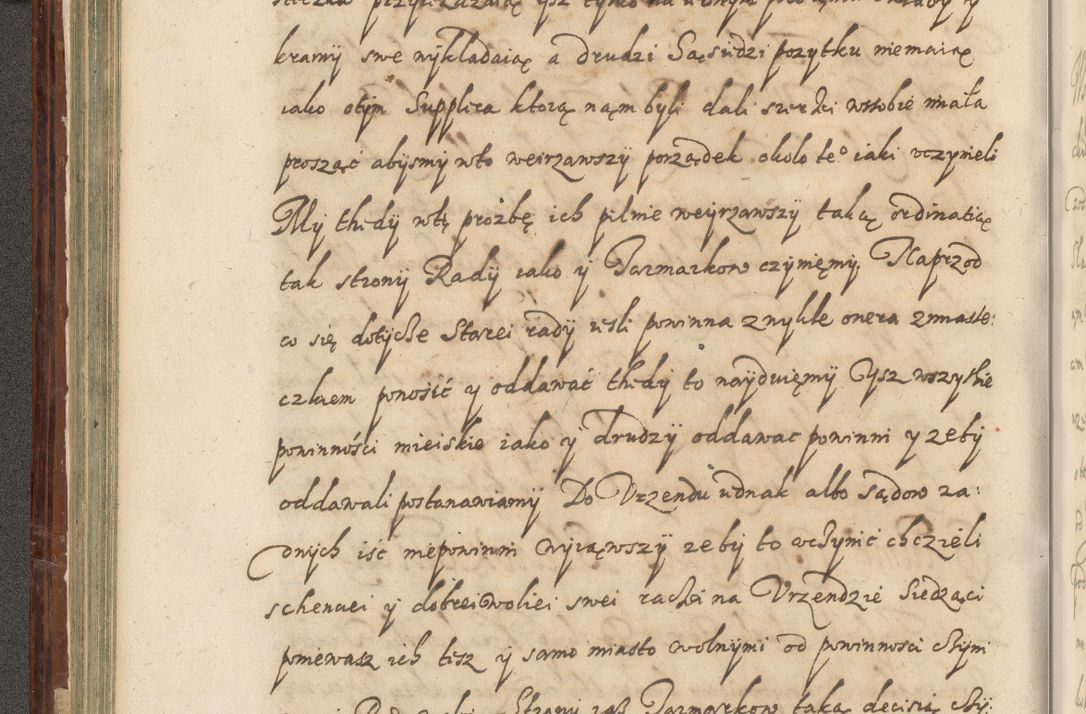 kramÿ swe wÿkładaią a drudzi Sąsiidzi pozÿtku niemaią
iako otÿm Supplica ktorą nąm bÿli dali szerzei wsobie miała
prosząc abÿsmÿ wto weirzawszÿ porządek około te° iaki vczÿnieli
Mÿ thedÿ wtę prożbę ich pilnie weÿrzawszÿ taką ordinatią
tak stronÿ Radÿ iako ÿ Jarmarkow czÿnięmÿ. Naprzod
co się dotÿcze Starei radÿ iesli powinna zwÿkłe onera zmiaste:
czkiem ponosić ÿ oddawać thedÿ to naÿduięmÿ ÿsz wszÿtkie
powinności mieiskie iako ÿ drudzÿ oddawac powinni ÿ zebÿ
oddawali postanawiamÿ Do Vrzendu iednak albo sądow za:
dnÿch iść niepowinni wÿiąwszÿ zebÿ to vczÿnić chczieli
schenciei ÿ dobreiwoliei swei radzi na Vrzendzie Siedząci
poniewasz ich tesz ÿ samo miasto wolnÿmi od powinnosci czÿni
Stronÿ zaś Jarmarkow taką decisią czÿ: